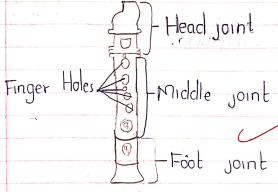 Head joint
Finger Holes
Middle joint
Foot joint